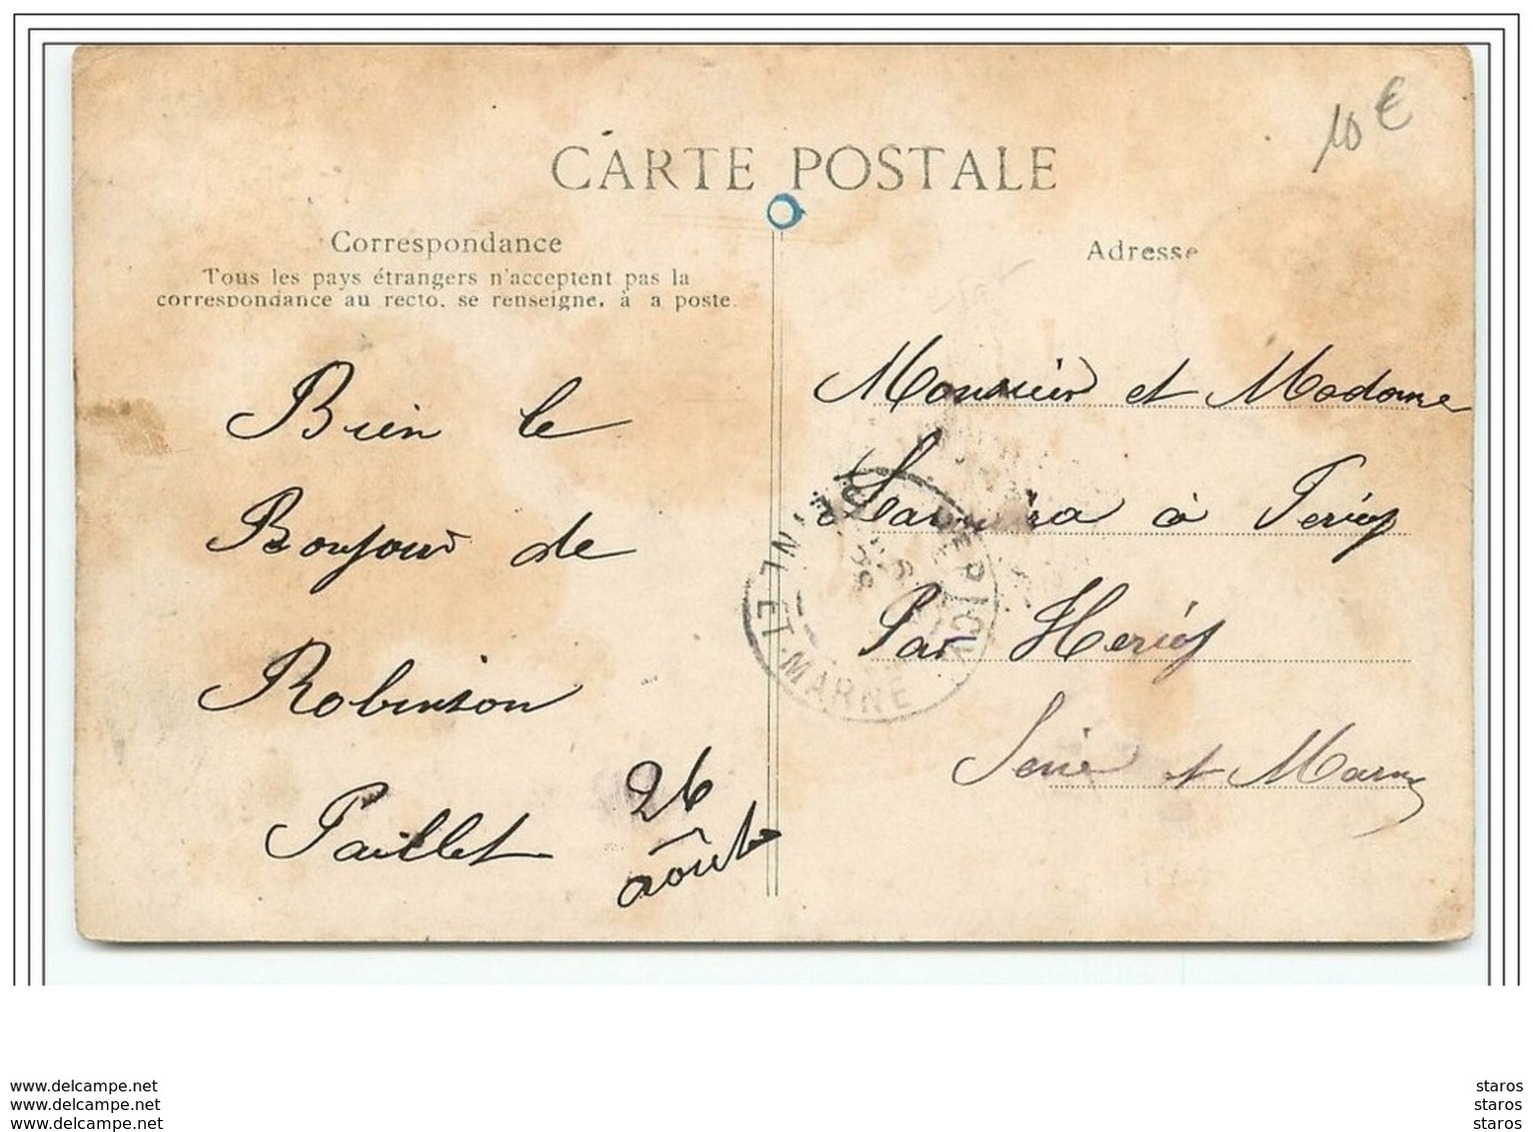 10 €
CARTE POSTALE
Correspondance
Tous les pays étrangers n'acceptent pas la
correspondance au recto. se renseigne. à a poste.
Adresse
Bien le
Bonjour de
Robinson
Paillet
26
août
Monsieur et Madame
à Féricy
Par Hericy
Seine et Marne
HERICY
SEINE ET MARNE
www.delcampe.net
www.delcampe.net
www.delcampe.net
staros
staros
staros